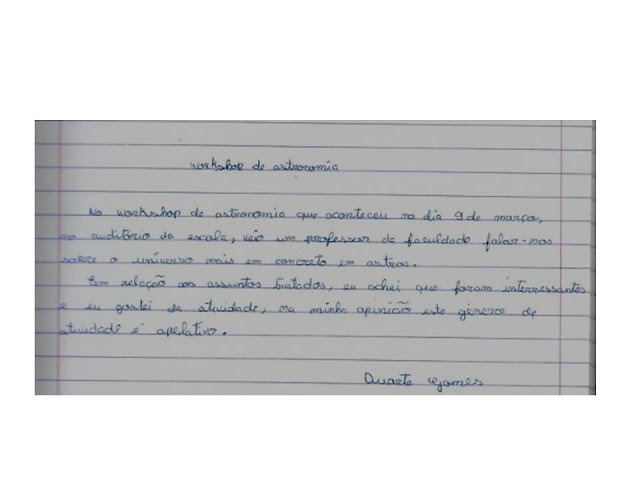 Workshop de astronomia
No workshop de astronomia que aconteceu no dia 9 de março,
no auditório da escola, veio um professor da faculdade falar-nos
sobre o universo mais em concreto em astros.
Em relação aos assuntos tratados, eu achei que foram interressantes
e eu gostei da atividade, na minha opinião este género de
atividade é apelativo.
Duarte Gomes